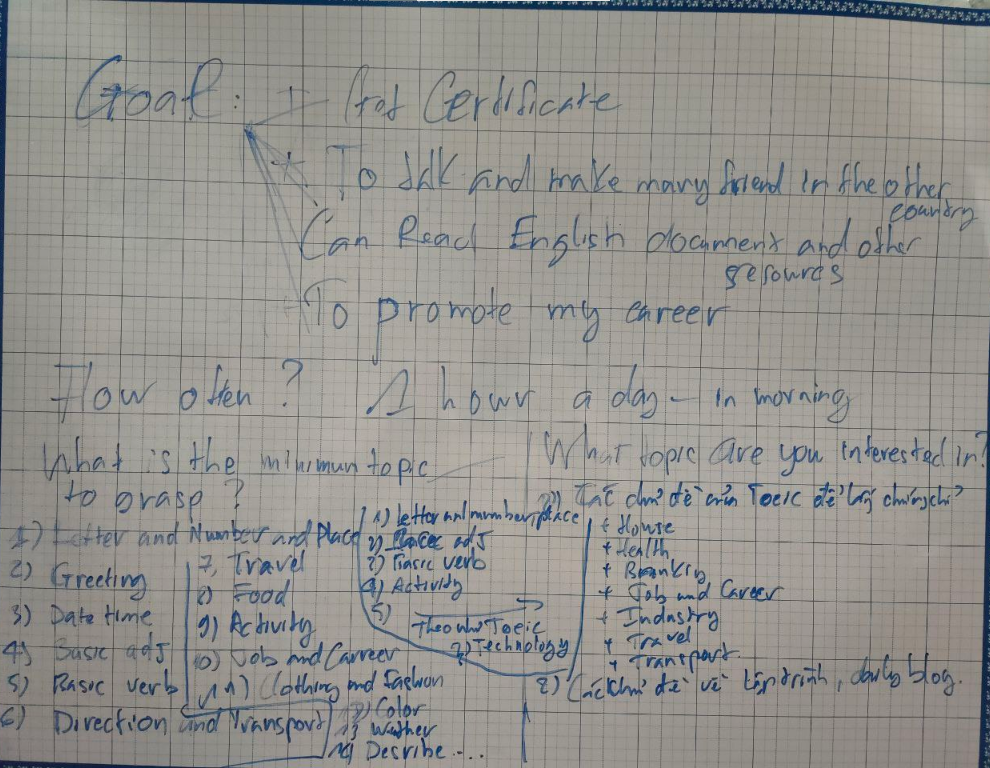 Goal: + Got Certificate
+ To talk and make many friend in the other country
Can Read English document and other resourcs
To promote my career
How often? 1 hour a day - in morning
What is the minimun topic to grasp?
1) Letter and Number and Place
2) Greeting
3) Date time
4) Basic adj
5) Basic verb
6) Direction and Transport
7, Travel
8) Food
9) Activity
10) Job and Carreer
11) Clothing and Fashion
12) Color
13 Wether
14) Describe...
1) letter and number, place
2) adj
3) Basic verb
4) Activity
5)
Theo như Toeic
2) Technology
What topic are you interested in?
chủ đề của Toeic để lấy chứng chỉ?
+ House
+ Health
+ Banking
+ Job and Career
+ Industry
+ Travel
+ Transport
2) Các chủ đề về lập trình, daily blog.